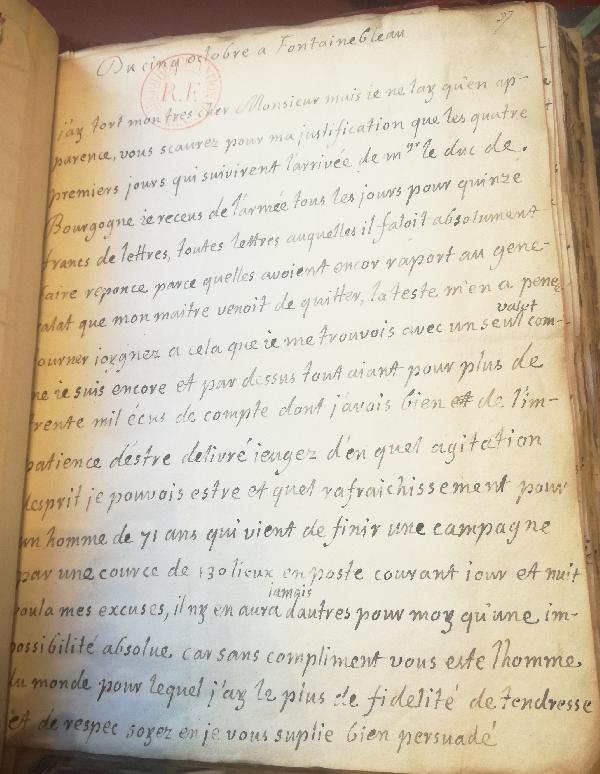 27
Du cinq octobre a Fontainebleau
R.F.
j'ay tort mon tres cher Monsieur mais ie ne lay qu'en ap-
parence, vous scaurez pour ma justification que les quatre
premiers jours qui suivirent l'arrivée de mgr le duc de
Bourgogne ie receus de l'armée tous les jours pour quinze
francs de lettres, toutes lettres auquelles il faloit absolument
faire reponce parce quelles avoient encor raport au gene-
ralat que mon maitre venoit de quitter, la teste m'en a pencé
tourner ioygnez a cela que ie me trouvois avec un seul valet com-
me ie suis encore et par dessus tout aiant pour plus de
trente mil écus de compte dont j'avois bien de l'im-
patience déstre delivré ieugez d'en quel agitation
desprit je pouvois estre et quel rafraichissement pour
un homme de 71 ans qui vient de finir une campagne
par une cource de 130 lieux en poste courant iour et nuit
voula mes excuses, il ny en aura iamais dautres pour moy qu'une im-
possibilité absolue car sans compliment vous este lhomme
du monde pour lequel j'ay le plus de fidelité de tendresse
et de respec soyez en je vous suplie bien persuadé